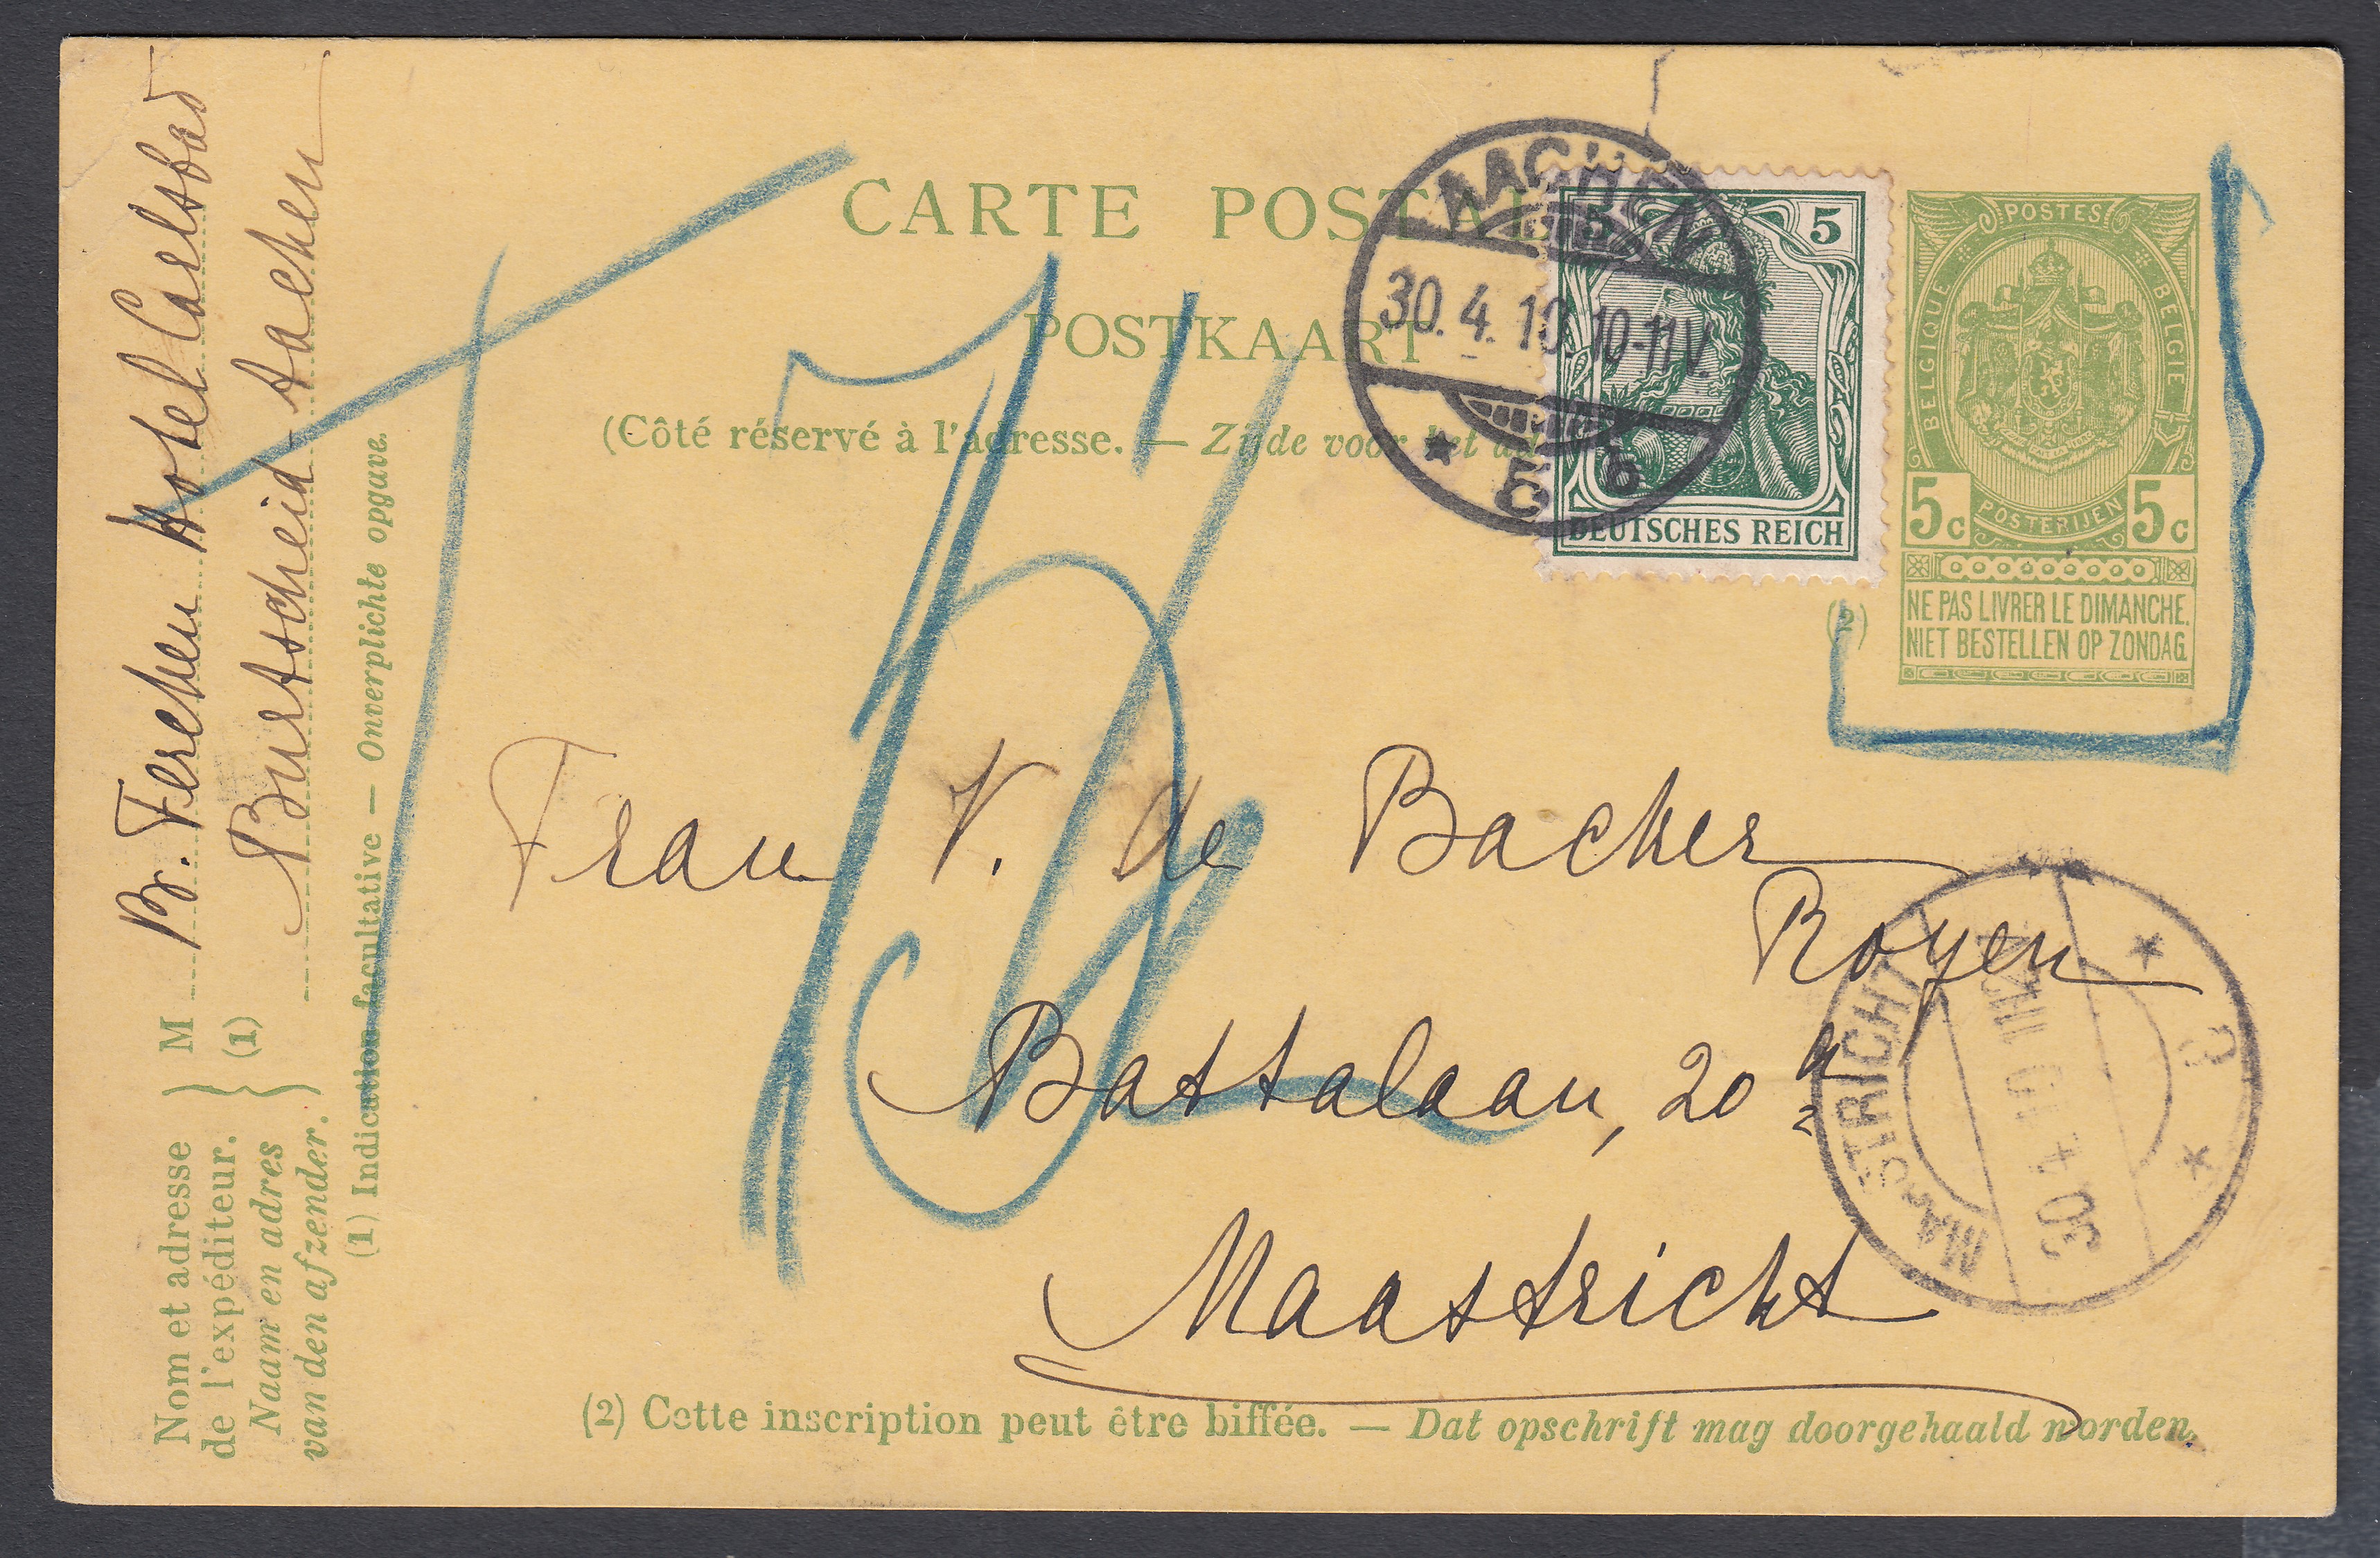 CARTE POSTAL
POSTKAART
(Côté réservé à l'adresse. — Zijde voor het
AACHEN
30. 4. 10. 10-11V.
* 5 b
5 5
DEUTSCHES REICH
POSTES
BELGIQUE
BELGIE
5c POSTERIJEN 5c
(2)
NE PAS LIVRER LE DIMANCHE.
NIET BESTELLEN OP ZONDAG.
T
Frau V. de Backer
Royen
Battalaan, 20 a
Maastricht
MAASTRICHT
30.4.10
(2) Cette inscription peut être biffée. — Dat opschrift mag doorgehaald worden.
Nom et adresse
de l'expéditeur.
Naam en adres
van den afzender.
M
(1)
Hotel Carlsbad
Burtscheid - Aachen
(1) Indication facultative — Onverplichte opgave.